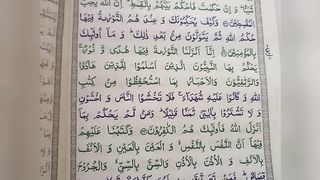 شَيْـًٔا ؕ وَ اِنْ حَكَمْتَ فَاحْكُمْ بَيْنَهُمْ بِالْقِسْطِ ؕ اِنَّ اللّٰهَ يُحِبُّ
الْمُقْسِطِيْنَ وَ كَيْفَ يُحَكِّمُوْنَكَ وَ عِنْدَهُمُ التَّوْرٰىةُ فِيْهَا
حُكْمُ اللّٰهِ ثُمَّ يَتَوَلَّوْنَ مِنْۢ بَعْدِ ذٰلِكَ ؕ وَ مَاۤ اُولٰٓئِكَ
بِالْمُؤْمِنِيْنَ اِنَّاۤ اَنْزَلْنَا التَّوْرٰىةَ فِيْهَا هُدًى وَّ نُوْرٌ ۚ
يَحْكُمُ بِهَا النَّبِيُّوْنَ الَّذِيْنَ اَسْلَمُوْا لِلَّذِيْنَ هَادُوْا
وَ الرَّبّٰنِيُّوْنَ وَ الْاَحْبَارُ بِمَا اسْتُحْفِظُوْا مِنْ كِتٰبِ
اللّٰهِ وَ كَانُوْا عَلَيْهِ شُهَدَآءَ ۚ فَلَا تَخْشَوُا النَّاسَ وَ اخْشَوْنِ
وَ لَا تَشْتَرُوْا بِاٰيٰتِيْ ثَمَنًا قَلِيْلًا ؕ وَ مَنْ لَّمْ يَحْكُمْ بِمَاۤ
اَنْزَلَ اللّٰهُ فَاُولٰٓئِكَ هُمُ الْكٰفِرُوْنَ وَ كَتَبْنَا عَلَيْهِمْ
فِيْهَاۤ اَنَّ النَّفْسَ بِالنَّفْسِ ۙ وَ الْعَيْنَ بِالْعَيْنِ وَ الْاَنْفَ
بِالْاَنْفِ وَ الْاُذُنَ بِالْاُذُنِ وَ السِّنَّ بِالسِّنِّ ۙ وَ الْجُرُوْحَ